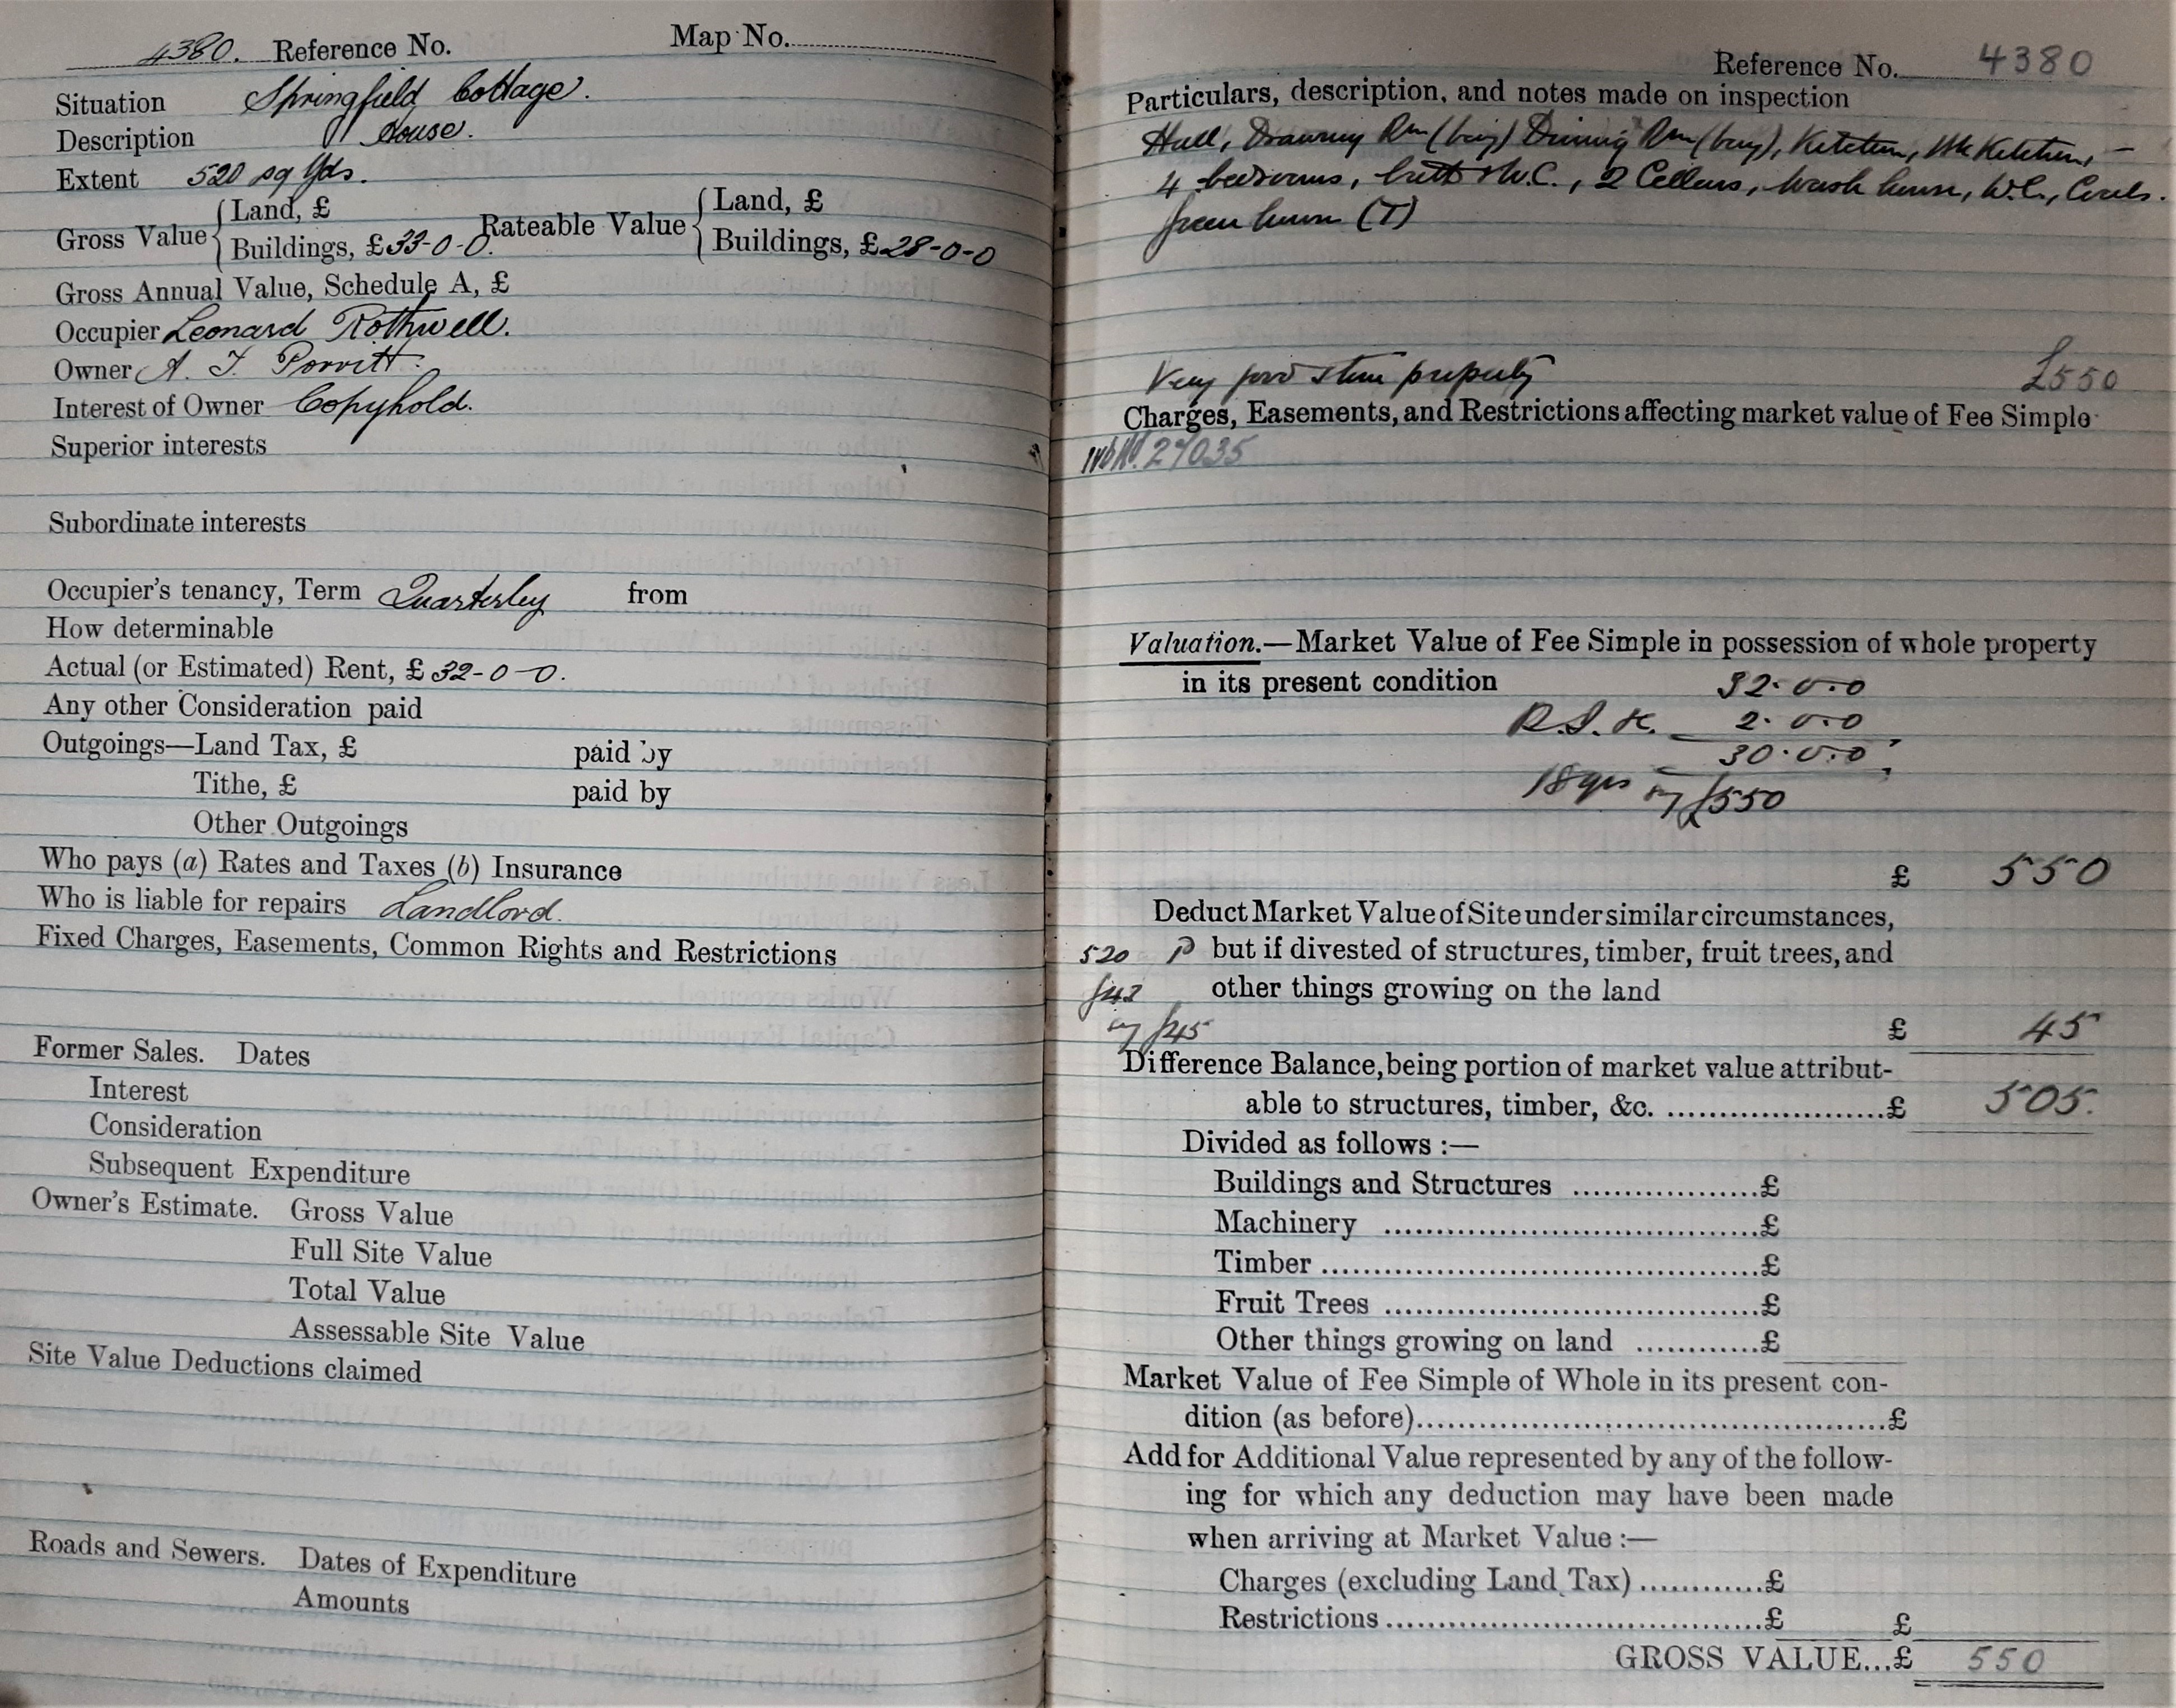 4380. Reference No. Map No.
Situation Springfield Cottage.
Description House.
Extent 520 sq Yds.
Gross Value { Land, £
Buildings, £33-0-0. Rateable Value { Land, £
Buildings, £28-0-0
Gross Annual Value, Schedule A, £
Occupier Leonard Rothwell.
Owner A. T. Porritt.
Interest of Owner Copyhold.
Superior interests
Subordinate interests
Occupier's tenancy, Term Quarterley from
How determinable
Actual (or Estimated) Rent, £32-0-0.
Any other Consideration paid
Outgoings—Land Tax, £ paid by
Tithe, £ paid by
Other Outgoings
Who pays (a) Rates and Taxes (b) Insurance
Who is liable for repairs Landlord.
Fixed Charges, Easements, Common Rights and Restrictions
Former Sales. Dates
Interest
Consideration
Subsequent Expenditure
Owner's Estimate. Gross Value
Full Site Value
Total Value
Assessable Site Value
Site Value Deductions claimed
Roads and Sewers. Dates of Expenditure
Amounts
Reference No. 4380
Particulars, description, and notes made on inspection
Hall, Drawing Rm (bay) Dining Rm (bay), Kitchen, Kitchen, –
4 bedrooms, bath & W.C., 2 Cellars, Wash house, W.C., Coals.
Green house (T)
Very good stone property £550
Charges, Easements, and Restrictions affecting market value of Fee Simple
27035
Valuation.—Market Value of Fee Simple in possession of whole property
in its present condition 32.0.0
2.0.0
30.0.0
18 yrs say £550
£ 550
Deduct Market Value of Site under similar circumstances,
520 but if divested of structures, timber, fruit trees, and
£43 other things growing on the land
say £45 £ 45
Difference Balance, being portion of market value attribut-
able to structures, timber, &c. ......................£ 505.
Divided as follows :—
Buildings and Structures ...................£
Machinery ......................................£
Timber ............................................£
Fruit Trees ......................................£
Other things growing on land ............£
Market Value of Fee Simple of Whole in its present con-
dition (as before)................................................£
Add for Additional Value represented by any of the follow-
ing for which any deduction may have been made
when arriving at Market Value :—
Charges (excluding Land Tax) ............£
Restrictions ......................................£ £
GROSS VALUE...£ 550